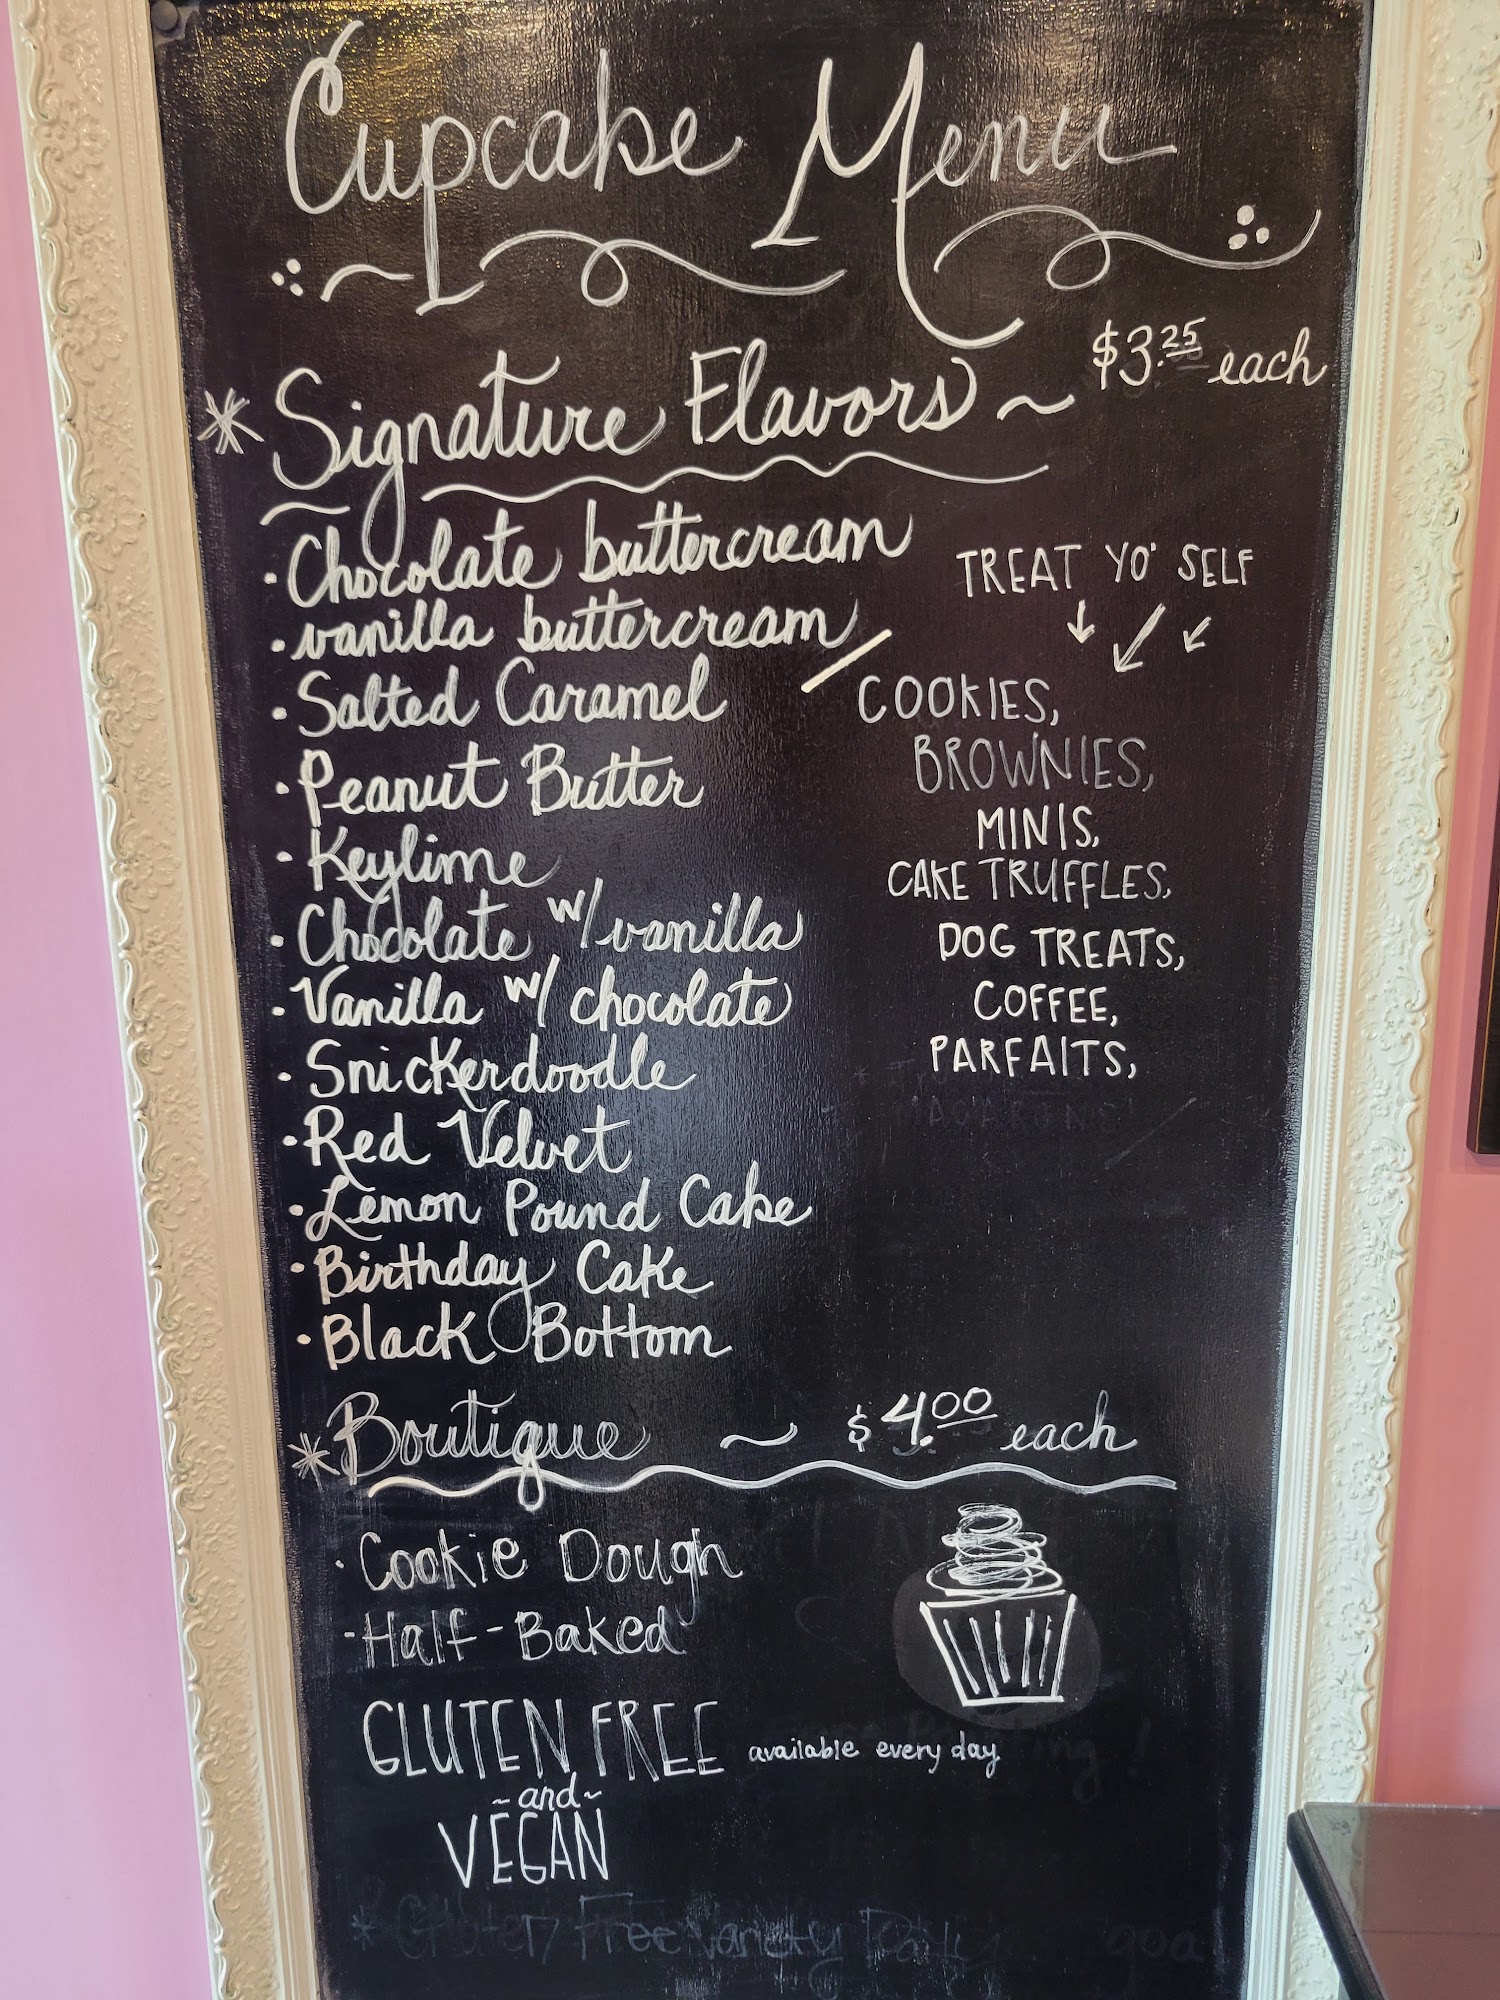 Cupcake Menu
* Signature Flavors ~ $3.25 each
· Chocolate buttercream
· vanilla buttercream
· Salted Caramel
· Peanut Butter
· Keylime
· Chocolate w/ vanilla
· Vanilla w/ chocolate
· Snickerdoodle
· Red Velvet
· Lemon Pound Cake
· Birthday Cake
· Black Bottom
TREAT YO' SELF
COOKIES,
BROWNIES,
MINIS,
CAKE TRUFFLES,
DOG TREATS,
COFFEE,
PARFAITS,
* Boutique ~ $4.00 each
· Cookie Dough
· Half-Baked
GLUTEN FREE available every day
~and~
VEGAN
* Gluten Free Variety Daily